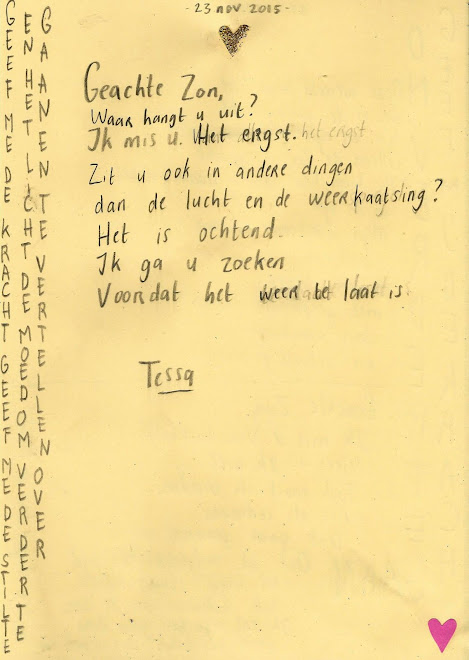 - 23 nov 2015 -
Geachte Zon,
Waar hangt u uit?
Ik mis u. Het ergst. het ergst
Zit u ook in andere dingen
dan de lucht en de weerkaatsing?
Het is ochtend.
Ik ga u zoeken
Voordat het weer te laat is.
Tessa
GEEF ME DE KRACHT GEEF ME DE STILTE
EN HET LICHT DE MOED OM VERDER TE
GAAN EN TE VERTELLEN OVER